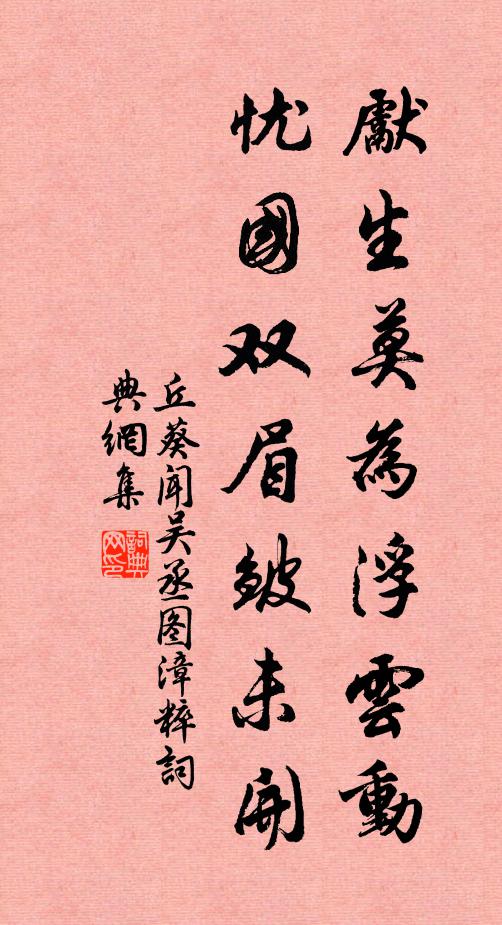 獻生莫為浮雲動
忧國双眉皴未開
丘葵闻吴丞图漳粹詞
典網集
詞典网印